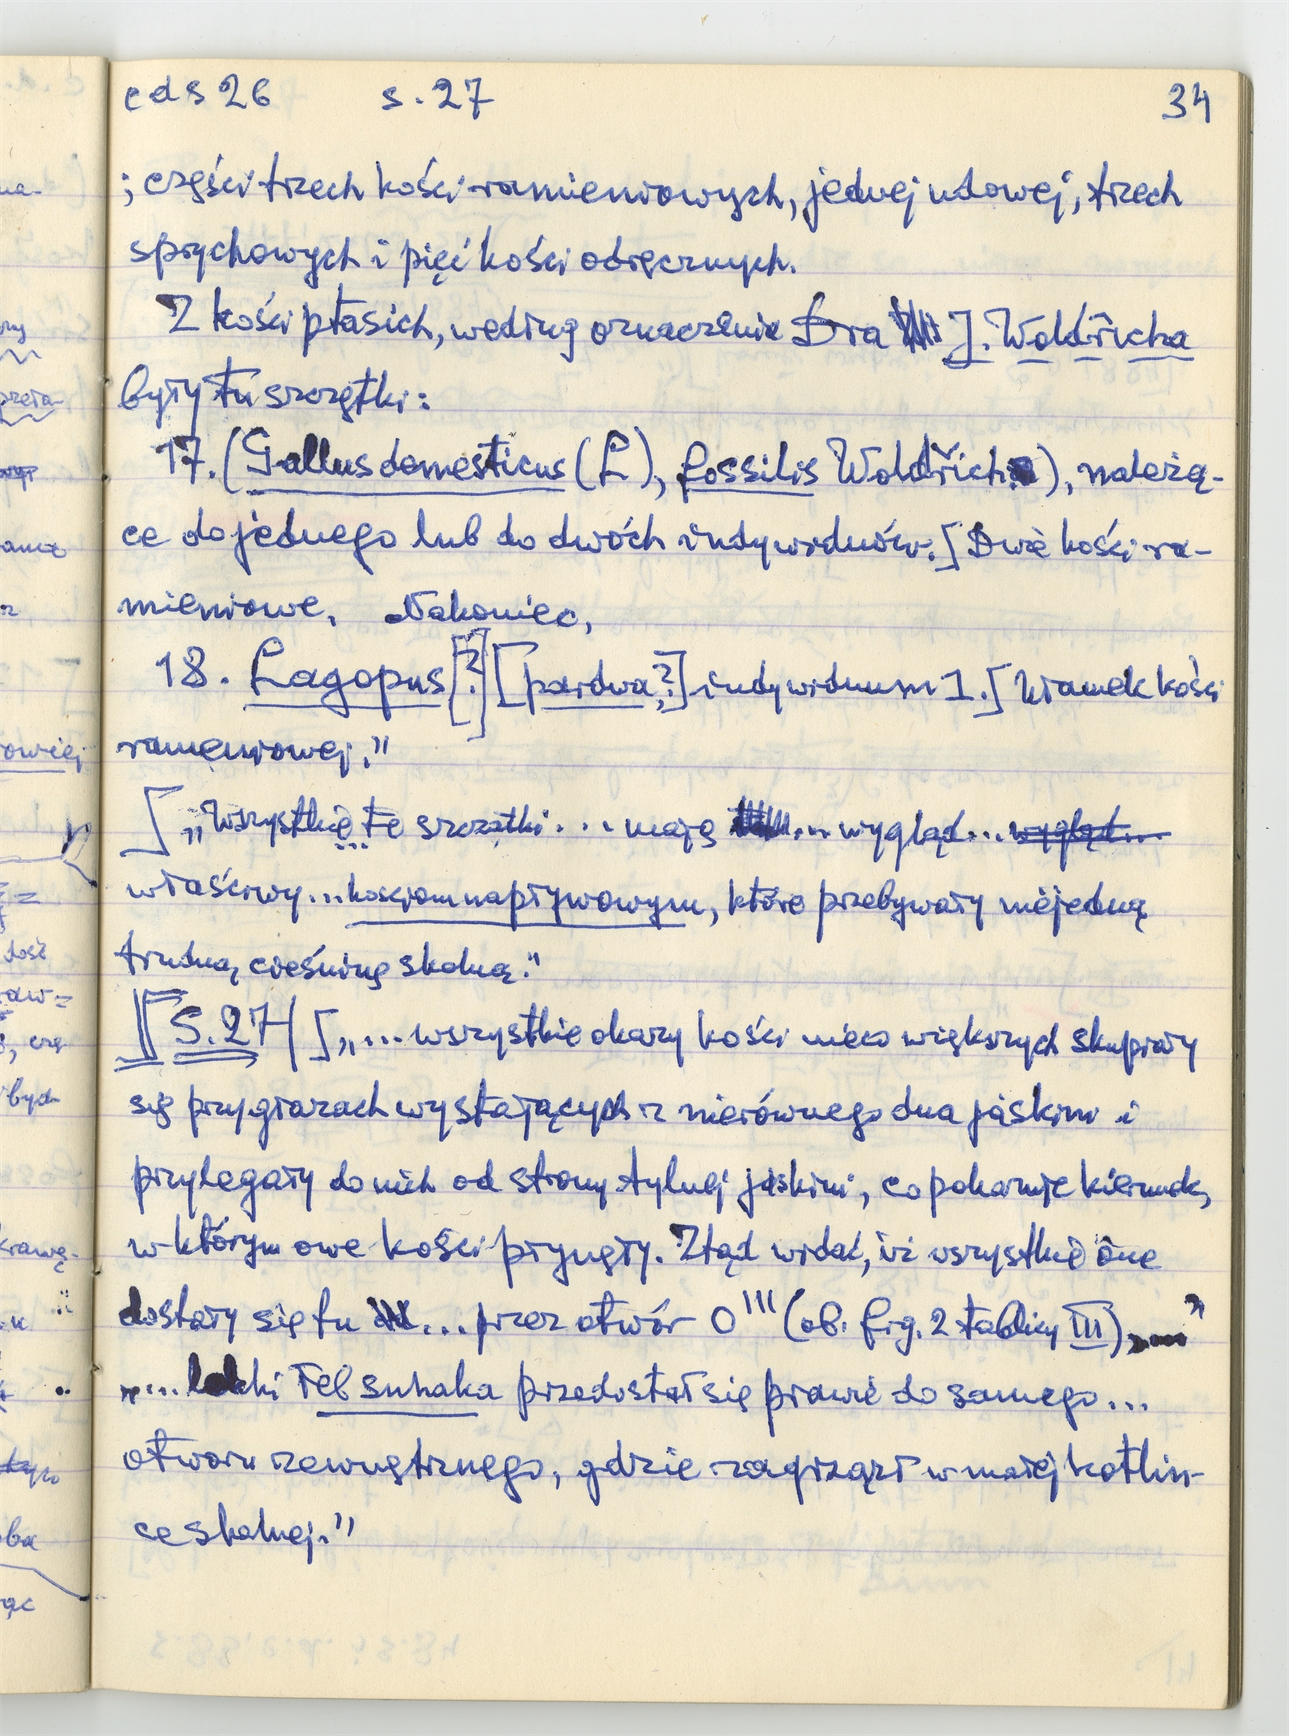 cds 26 s. 27 34
; części trzech kości ramieniowych, jednej udowej, trzech
sprychowych i pięć kości odręcznych.
Z kości ptasich, według oznaczenia Dra J. Woldřicha
były tu szczątki:
17. (Gallus domesticus (L), fossilis Woldřich), należą-
ce do jednego lub do dwóch indywiduów.] Dwie kości ra-
mieniowe. Nakoniec,
18. Lagopus [?] [pardwa?] indywiduum 1.] Ułamek kości
ramieniowej."
[„Wszystkie te szczątki... mają ... wygląd... wygląd...
właściwy... kościom napływowym, które przebywały niejedną
trudną cieśninę skalną."
[S. 27| [„... wszystkie okazy kości nieco większych skupiały
się przy głazach wystających z nierównego dna jaskini i
przylegały do nich od strony tylnej jaskini, co pokazuje kierunek,
w którym owe kości płynęły. Ztąd widać, iż wszystkie one
dostały się tu ... przez otwór O''' (ob. fig. 2 tablicy III)"
„... lekki łeb suhaka przedostał się prawie do samego...
otworu zewnętrznego, gdzie zagrzązł w małej kotlin-
ce skalnej."